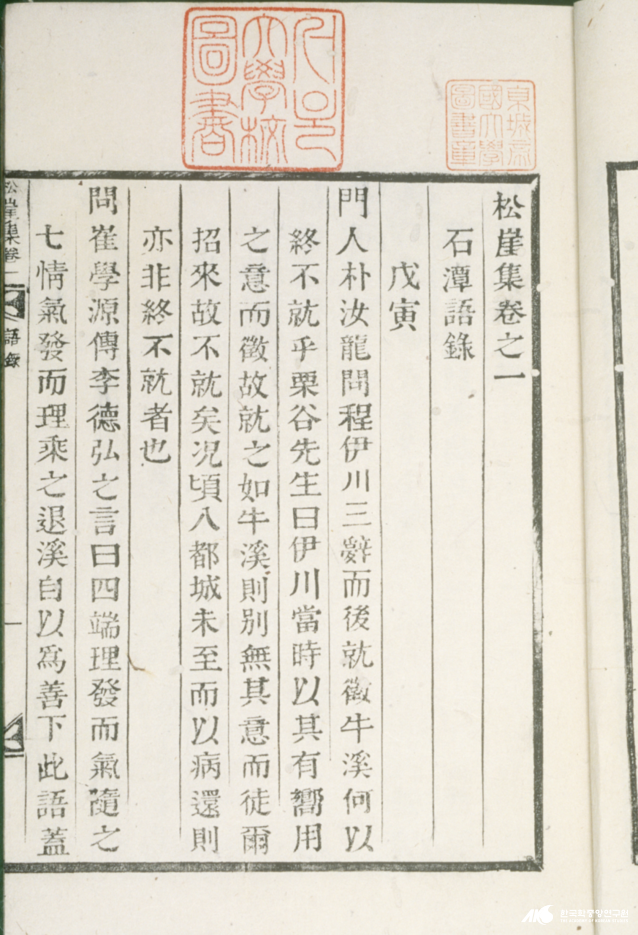 松崖集卷之一
石潭語錄
戊寅
門人朴汝龍問程伊川三辭而後就徵牛溪何以
終不就乎栗谷先生曰伊川當時以其有嚮用
之意而徵故就之如牛溪則別無其意而徒爾
招來故不就矣况頃入都城未至而以病還則
亦非終不就者也
問崔學源傳李德弘之言曰四端理發而氣隨之
七情氣發而理乘之退溪自以爲善下此語蓋
松崖集卷一
語錄
一
大學校
圖書
東城帝
國大學
圖書章
한국학중앙연구원